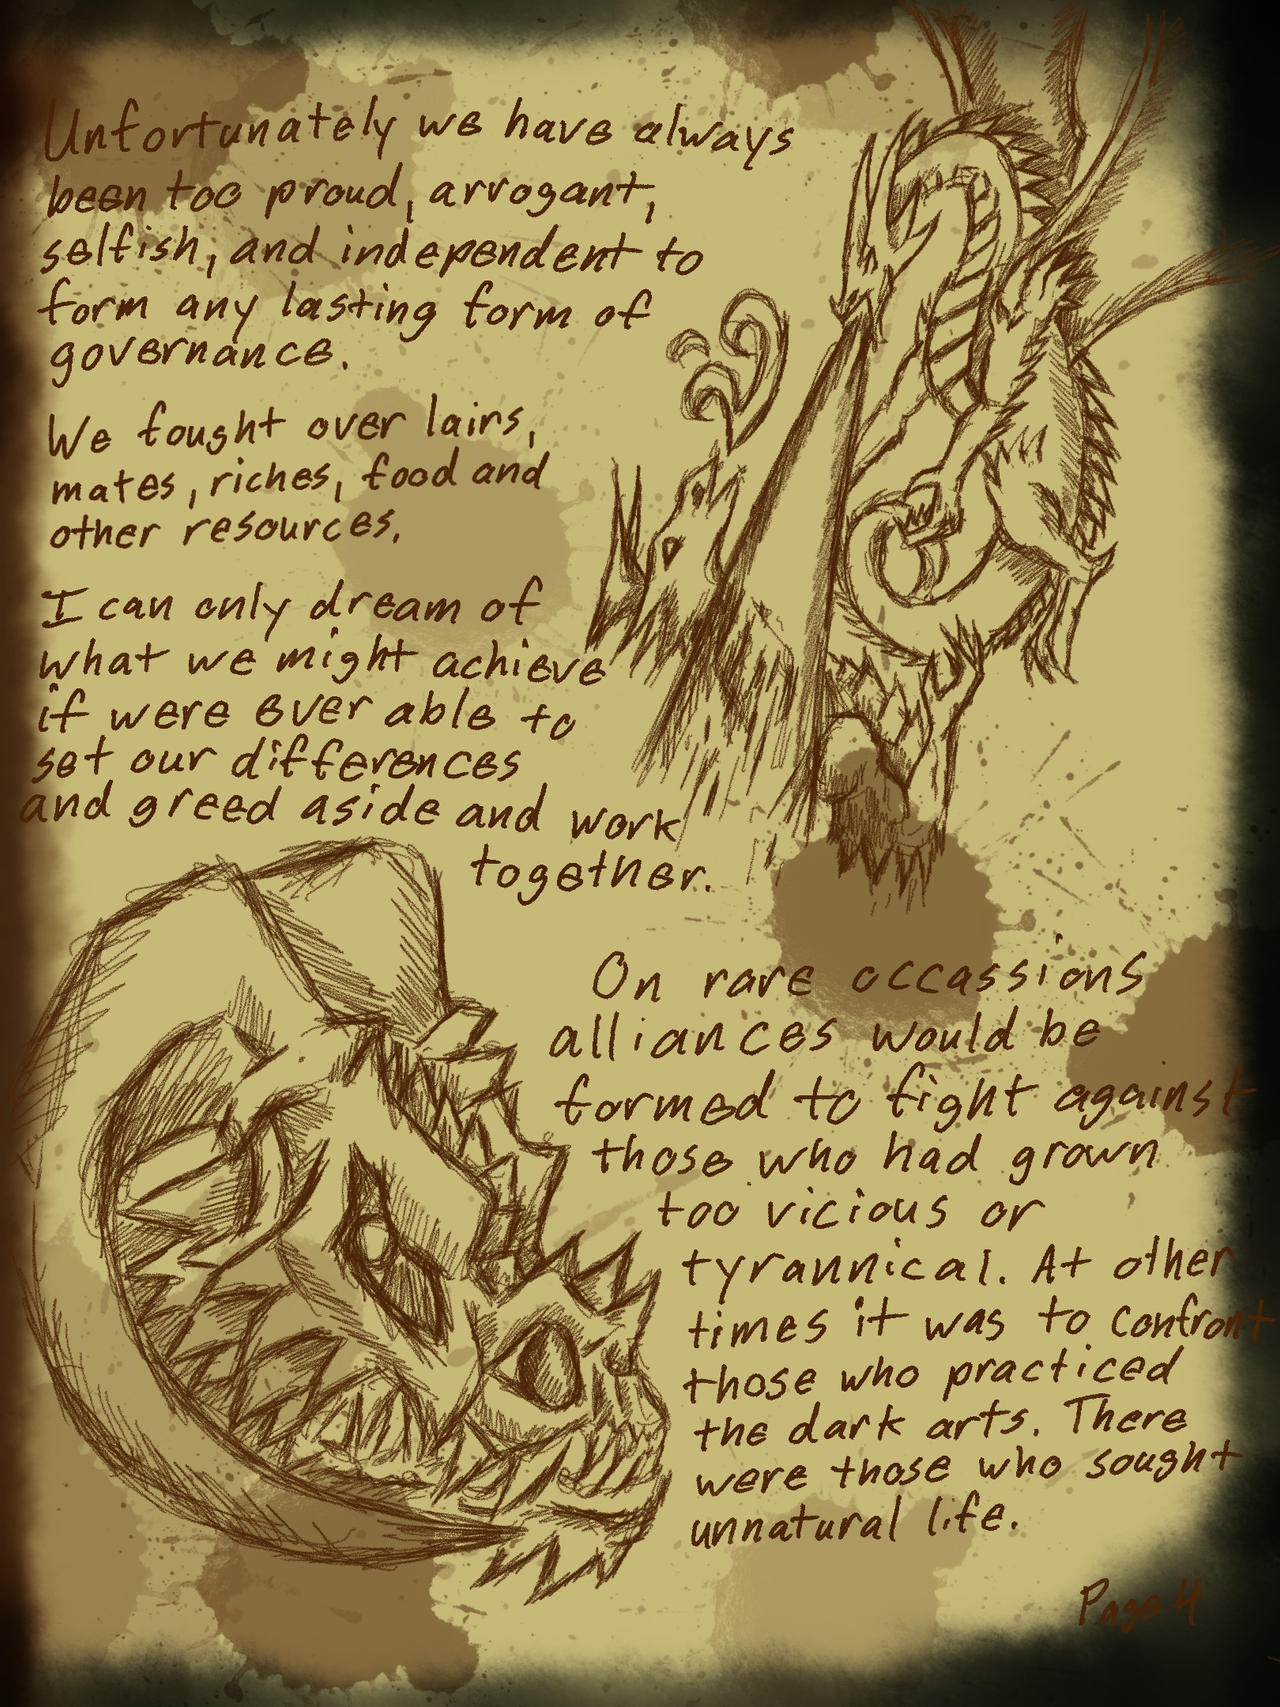 Unfortunately we have always
been too proud, arrogant,
selfish, and independent to
form any lasting form of
governance.
We fought over lairs,
mates, riches, food and
other resources.
I can only dream of
what we might achieve
if were ever able to
set our differences
and greed aside and work
together.
On rare occassions
alliances would be
formed to fight against
those who had grown
too vicious or
tyrannical. At other
times it was to confront
those who practiced
the dark arts. There
were those who sought
unnatural life.
Page 4